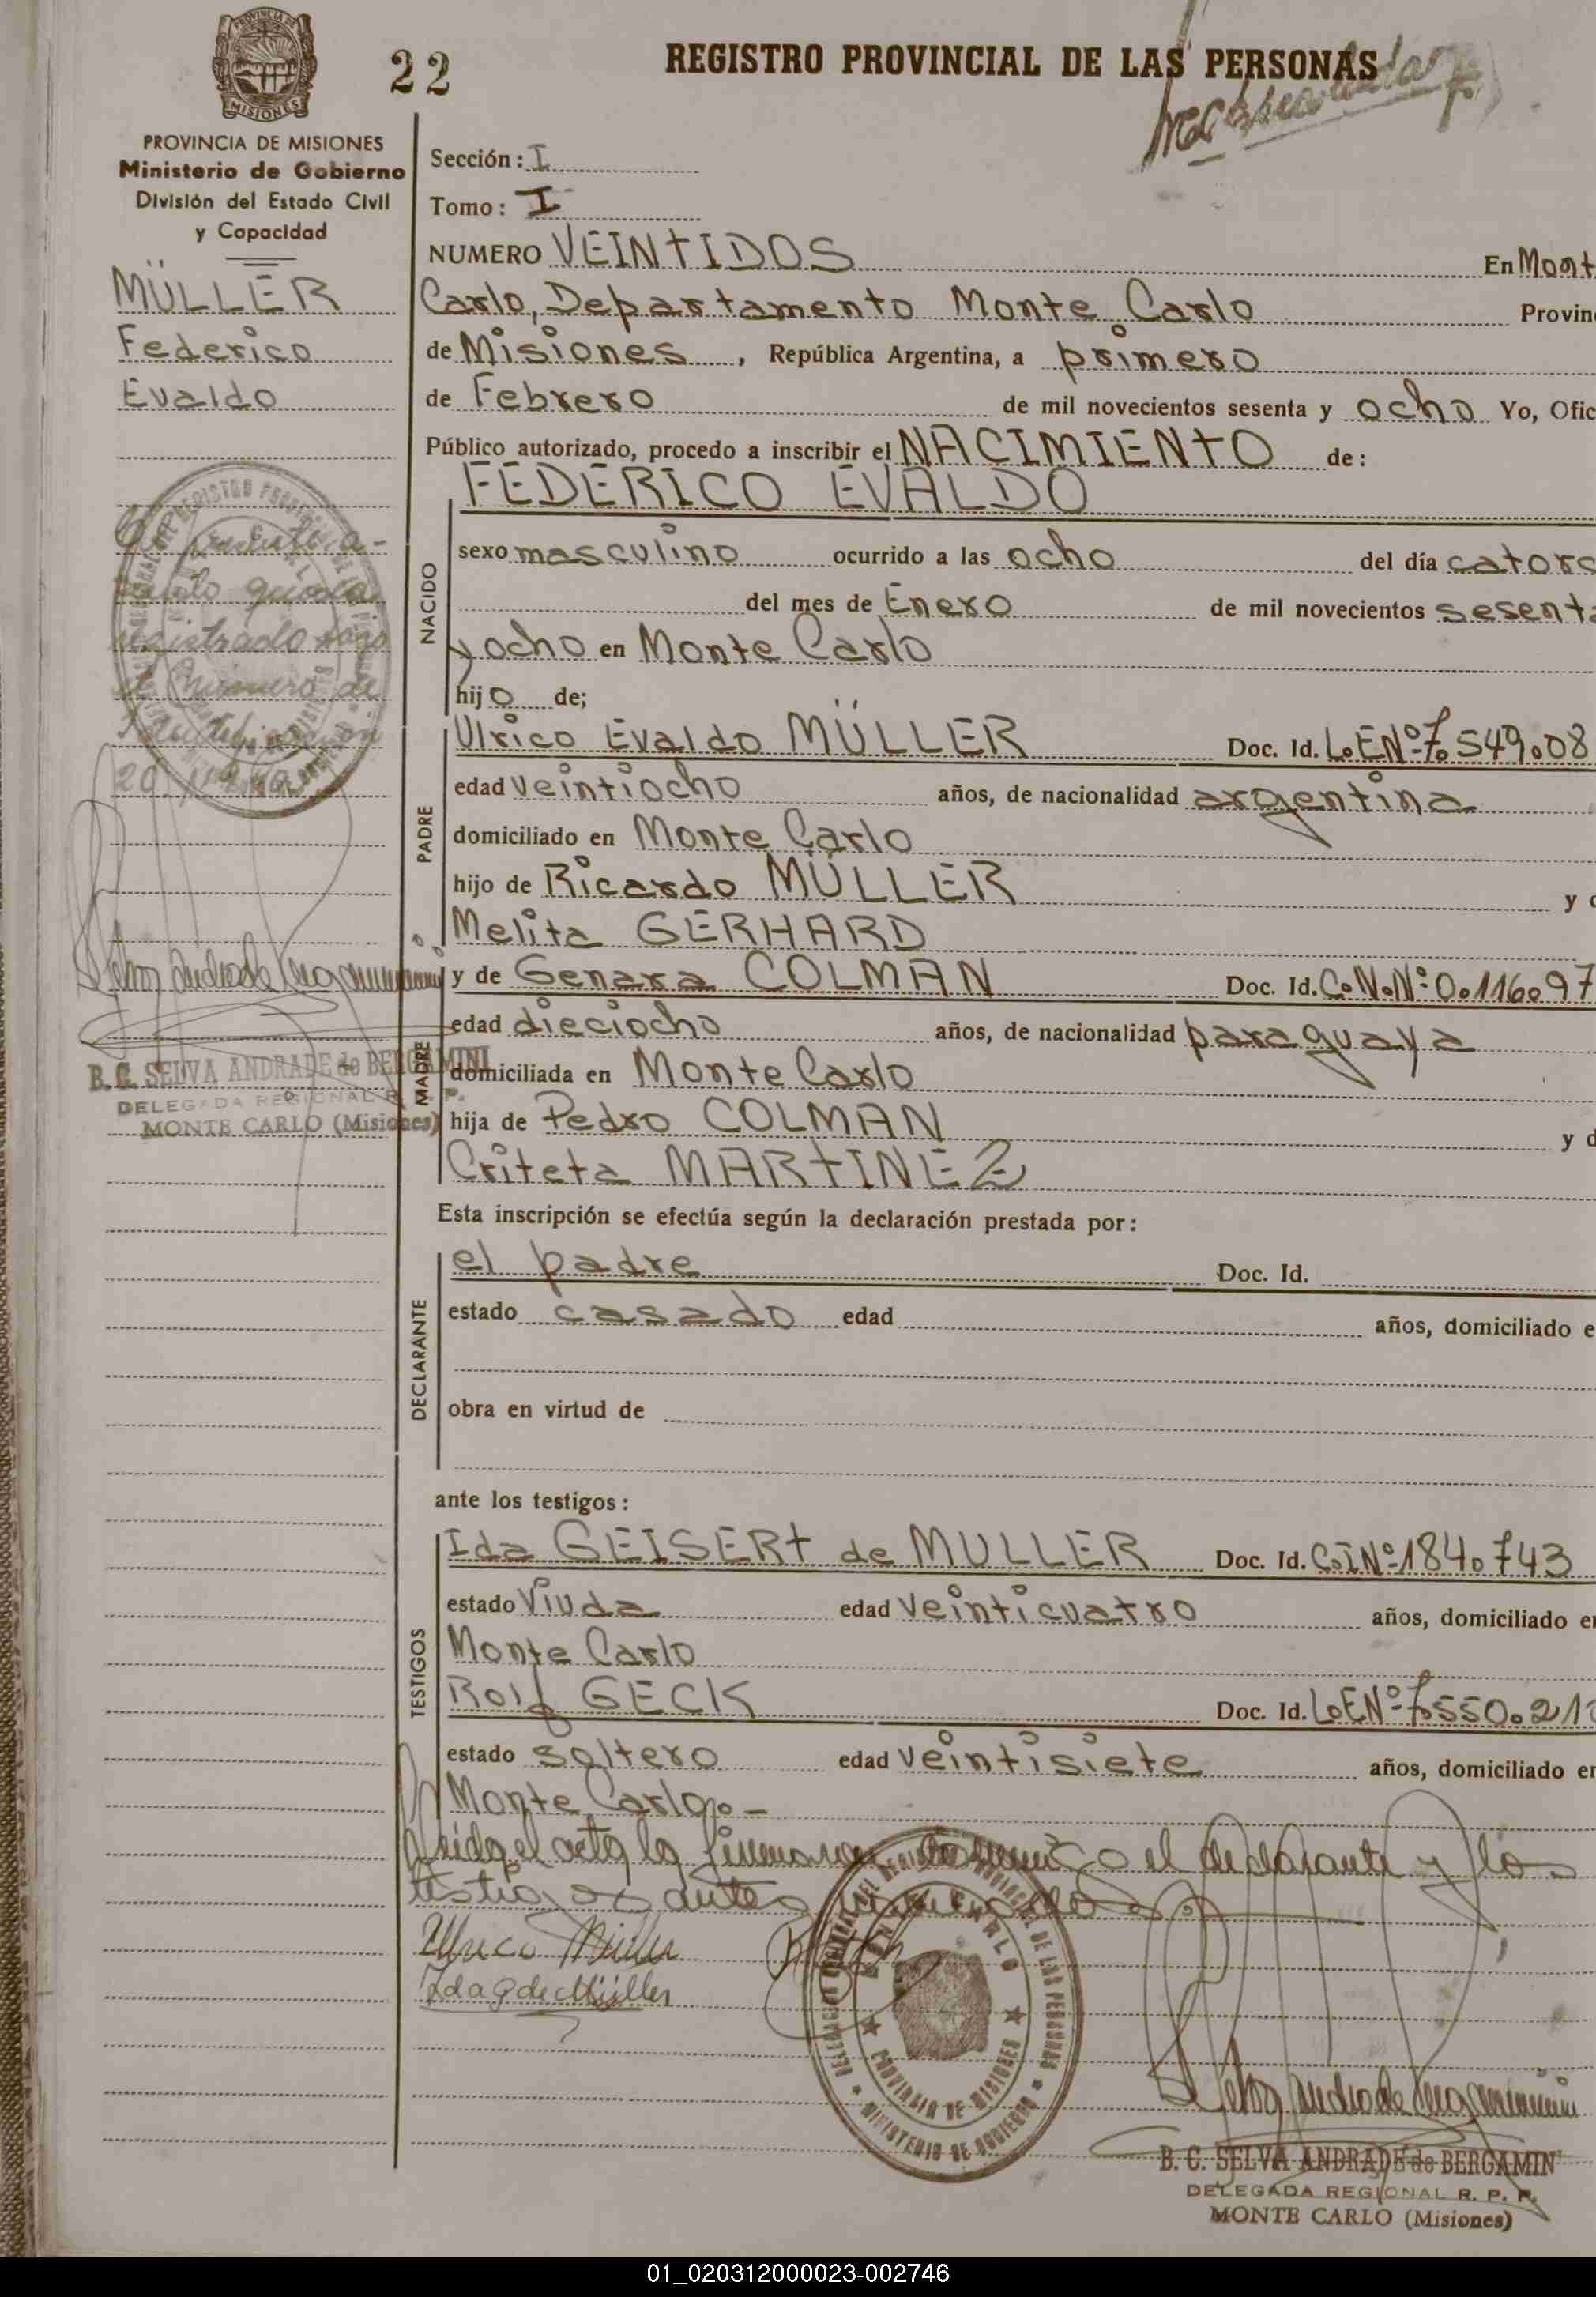 22
REGISTRO PROVINCIAL DE LAS PERSONAS
MISIONES
PROVINCIA DE MISIONES
Ministerio de Gobierno
División del Estado Civil
y Capacidad
MÜLLER
Federico
Evaldo
registrado bajo
el número de
B. C. SELVA ANDRADE de BERGAMINI
DELEGADA REGIONAL R. P.
MONTE CARLO (Misiones)
Sección: I
Tomo: I
NUMERO VEINTIDOS En Mont
Carlo, Departamento Monte Carlo Provin
de Misiones, República Argentina, a primero
de Febrero de mil novecientos sesenta y ocho Yo, Ofic
Público autorizado, procedo a inscribir el NACIMIENTO de:
NACIDO
FEDERICO EVALDO
sexo masculino ocurrido a las ocho del día catorc
del mes de Enero de mil novecientos sesenta
y ocho en Monte Carlo
hijo de;
PADRE
Ulrico Evaldo MÜLLER Doc. Id. L.E.Nº 7.549.08
edad veintiocho años, de nacionalidad argentina
domiciliado en Monte Carlo
hijo de Ricardo MÜLLER y d
Melita GERHARD
MADRE
y de Genara COLMAN Doc. Id. C.N.Nº 0.116.97
edad dieciocho años, de nacionalidad paraguaya
domiciliada en Monte Carlo
hija de Pedro COLMAN y d
Criteta MARTINEZ
Esta inscripción se efectúa según la declaración prestada por:
DECLARANTE
el padre Doc. Id.
estado casado edad años, domiciliado e
obra en virtud de
ante los testigos:
TESTIGOS
Ida GEISERT de MULLER Doc. Id. C.I.Nº 184.743
estado Viuda edad veinticuatro años, domiciliado en
Monte Carlo
Rolf GECK Doc. Id. L.E.Nº 7.550.21
estado soltero edad veintisiete años, domiciliado en
Monte Carlo.-
Leida el acta la firmaron conmigo el declarante y los
testigos antes
Ulrico Müller
Ida G de Müller
MONTE CARLO
PROVINCIA DE MISIONES
MINISTERIO DE GOBIERNO
B. C. SELVA ANDRADE de BERGAMIN
DELEGADA REGIONAL R. P. P.
MONTE CARLO (Misiones)
01_020312000023-002746